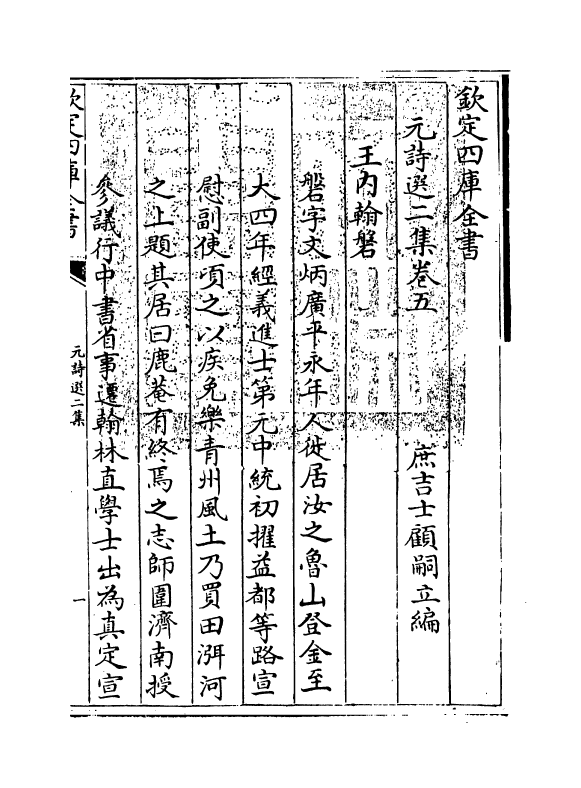 欽定四庫全書
元詩選二集卷五
庶吉士顧嗣立編
王內翰磐
磐字文炳廣平永年人徙居汝之魯山登金至
大四年經義進士第元中統初擢益都等路宣
慰副使頃之以疾免樂青州風土乃買田洱河
之上題其居曰鹿菴有終焉之志師圍濟南授
參議行中書省事遷翰林直學士出為真定宣
欽定四庫全書
元詩選二集
一